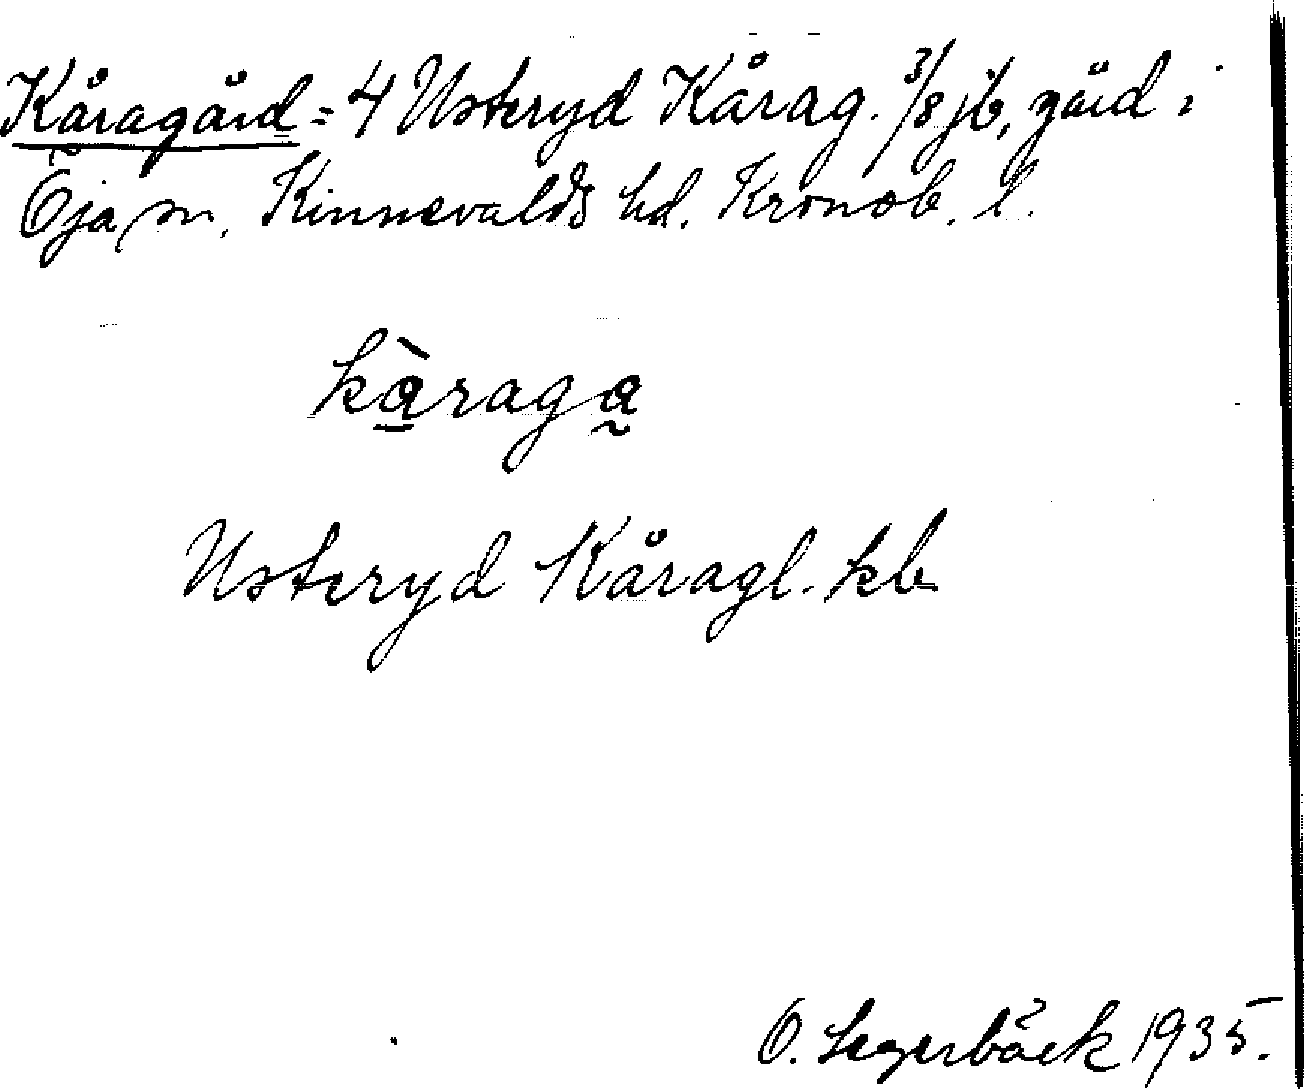 Kåragård = 4 Usteryd Kårag. 3/8 jb, gård i
Öja sn. Kinnevalds hd. Kronob. l.
kàraga
Usteryd Kåragl. kb
O. Segerbäck 1935.